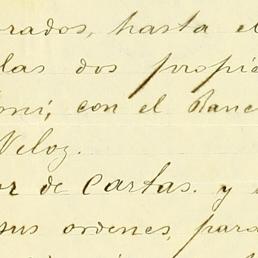 rados, hasta el
las dos propie
oni, con el Banc
Veloz.
or de Cartas. y
sus ordenes, para